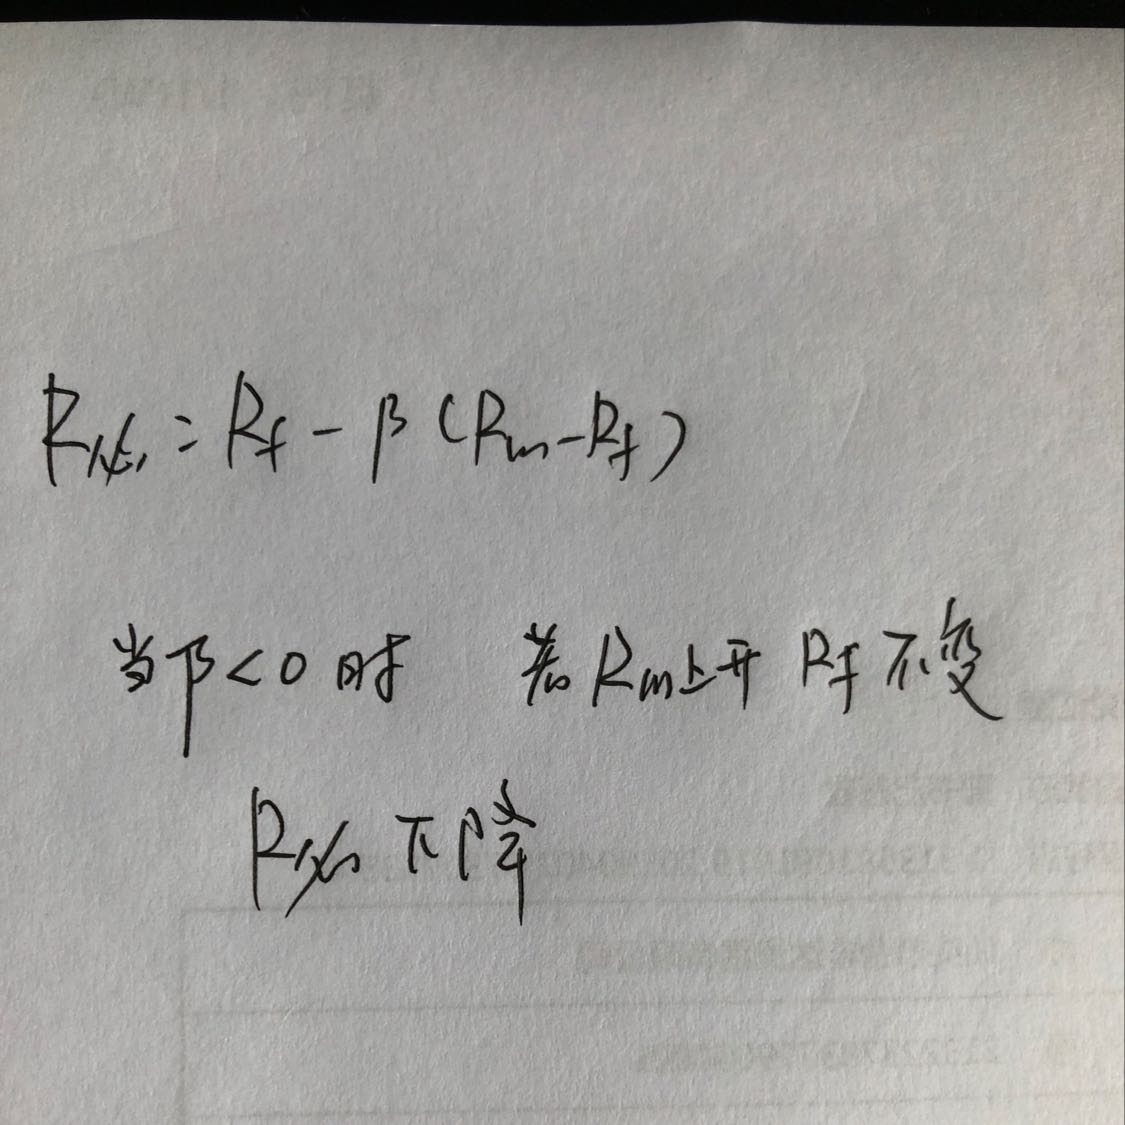 R必 = Rf - β (Rm - Rf)
当β<0时 若Rm上升 Rf不变
R必 下降